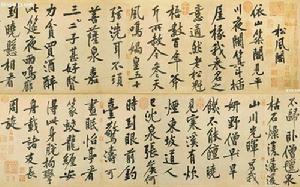 松風閣
依山築閣見平
川夜闌箕斗插
屋椽我來名之
意適然老松魁
梧數百年斧
斤所赦今參天
風鳴媧皇五十
弦洗耳不須
菩薩泉嘉
二三子甚好賢
力貧買酒醉
此筵夜雨鳴廊
到曉懸相看
不歸臥僧氈泉
枯石燥復潺湲
山川光暉為我
妍野僧旱
饑不能饘曉
見寒溪有炊
煙東坡道人
已沈泉張侯何
時到眼前釣
臺驚濤可
晝眠怡亭看
篆蛟龍纏安
得此身脫拘攣
舟載諸友長
周旋